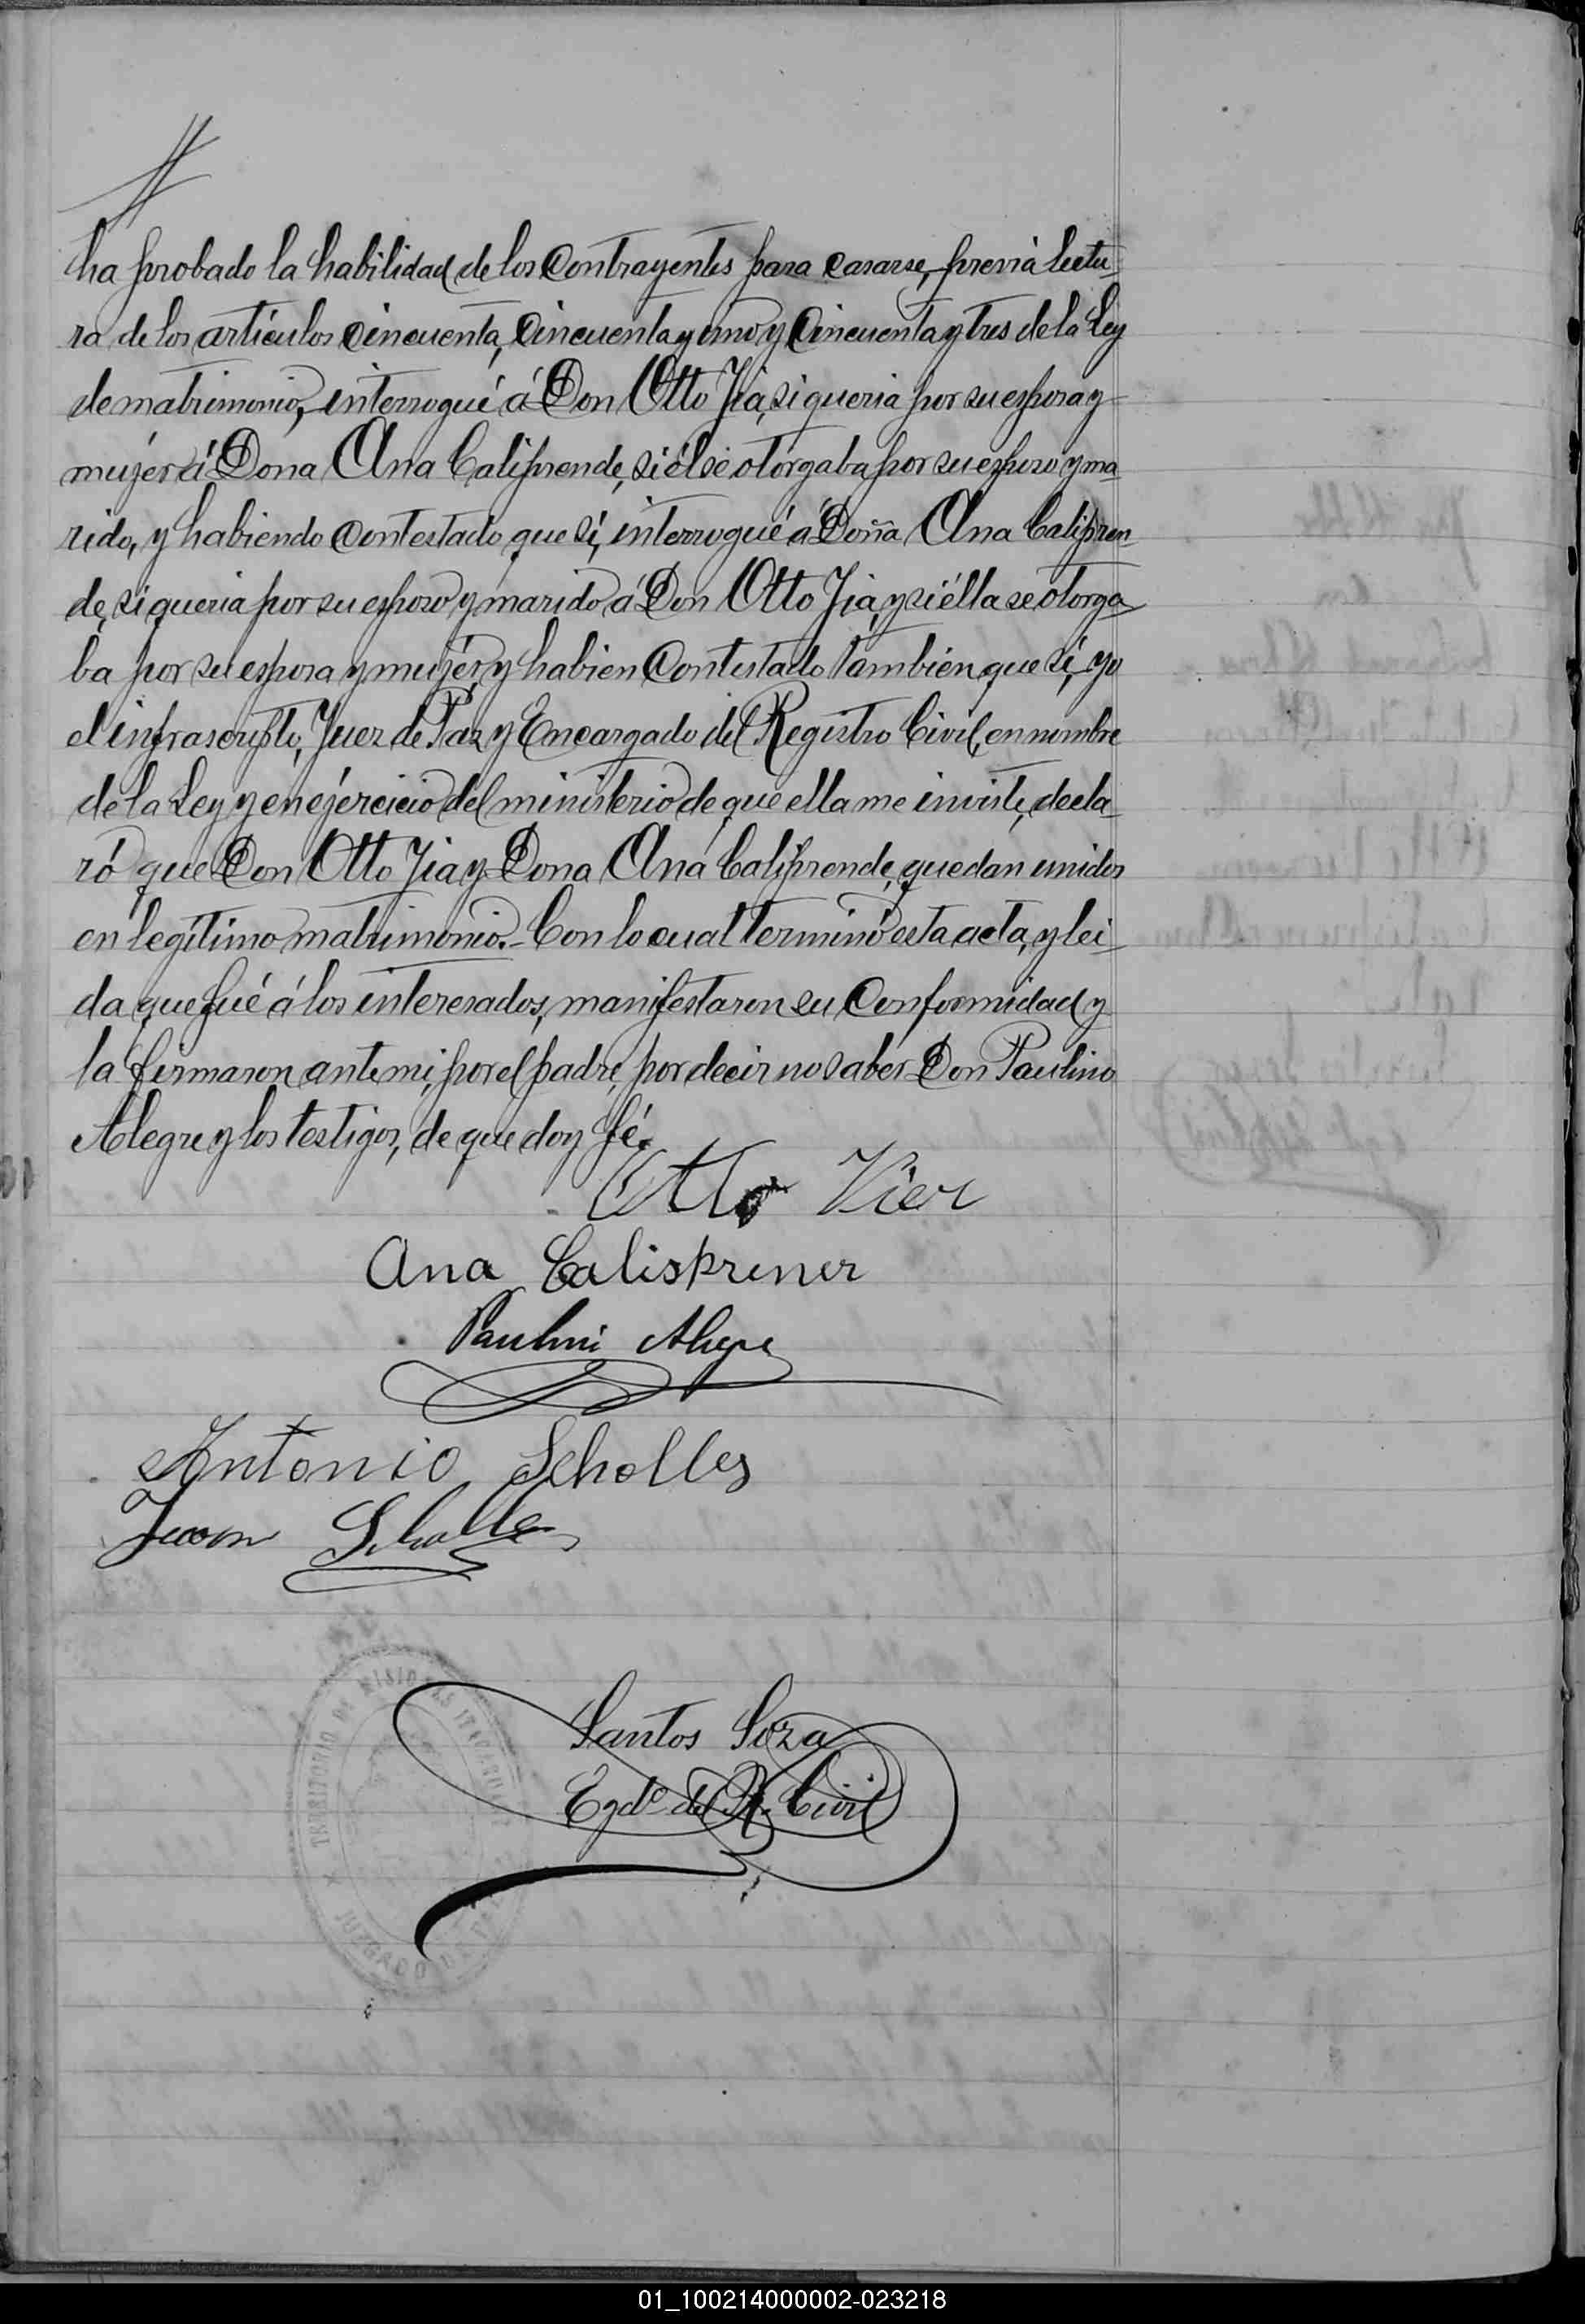 ha probado la habilidad de los Contrayentes para casarse, previa lectu-
ra de los artículos cincuenta, Cincuenta y uno y Cincuenta y tres de la Ley
de matrimonio, interrogué á Don Otto Jia, si queria por su esposa y
mujer á Dona Ana Caliprende, si él se otorgaba por su esposo y ma-
rido, y habiendo Contestado que sí, interrogué á Doña Ana Calipren-
de, si queria por su esposo y marido á Don Otto Jia, y si élla se otorga-
ba por su esposa y mujer, y habien Contestado también que sí, yo
el infrascripto, Juez de Paz y Encargado del Registro Civil, en nombre
de la Ley y en ejercicio del ministerio de que ella me inviste, decla-
ró que Don Otto Jia y Dona Ana Caliprende, quedan unidos
en legítimo matrimonio.- Con lo cual terminó esta acta, y lei-
da que fué á los interesados, manifestaron su Conformidad y
la firmaron ante mi, por el padre, por decir no saber Don Paulino
Alegre y los testigos, de que doy fé.
Otto Vier
Ana Caliskrener
Paulini Alegre
Antonio Scholles
Juan Scholles
TERRITORIO DE MISIONES
JUZGADO DE
Santos Soza
Egdo del R. Civil
01_100214000002-023218